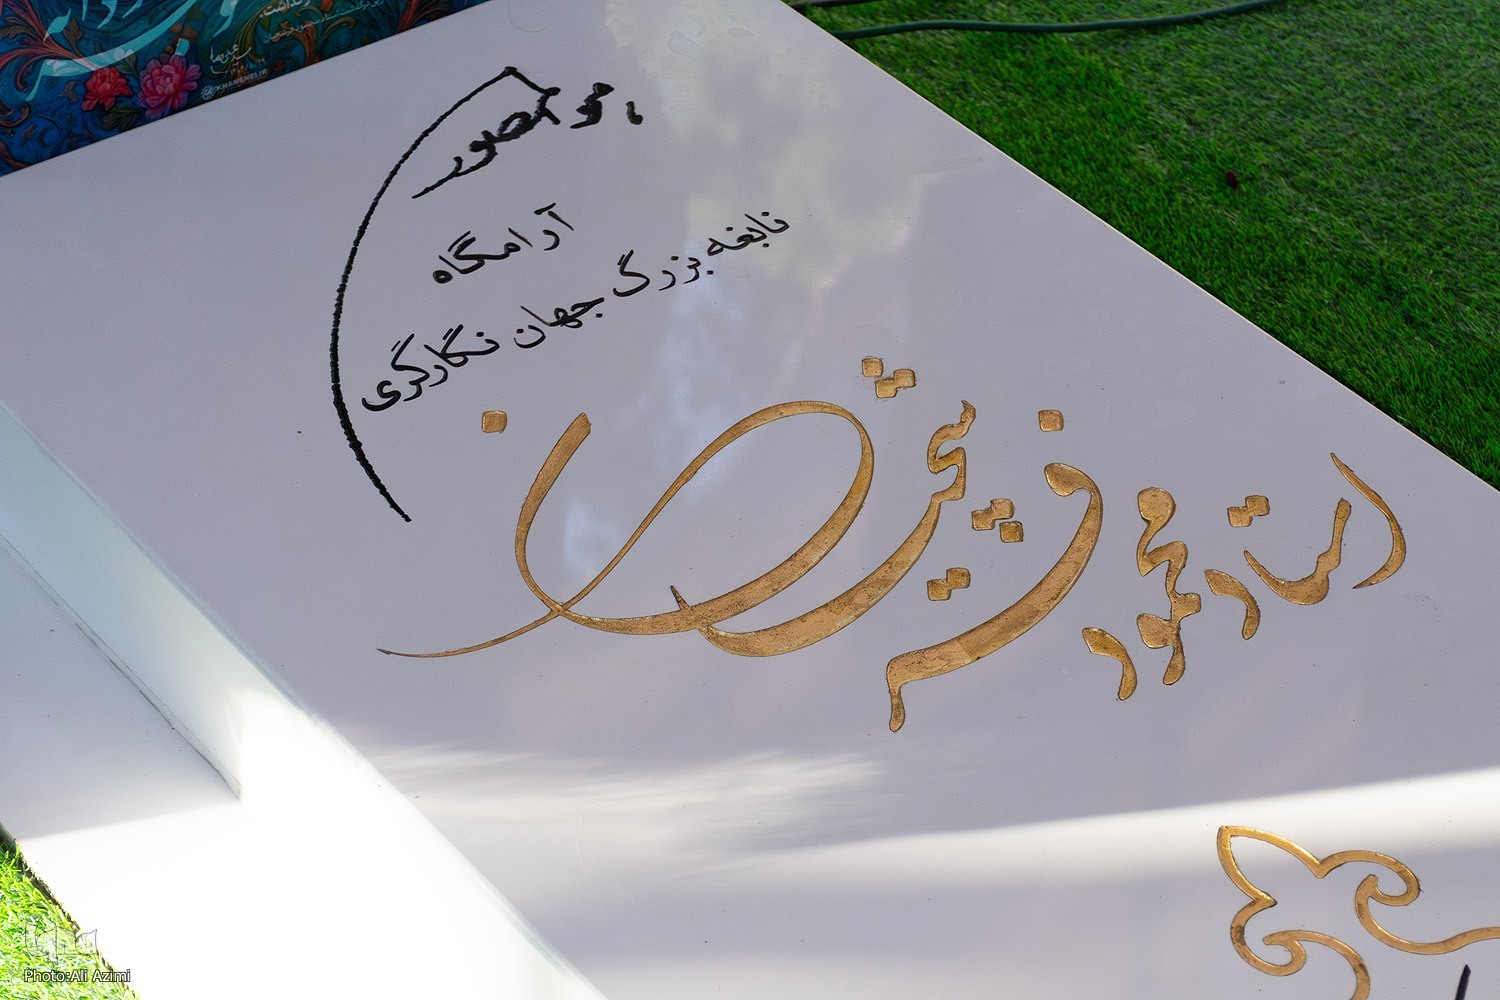 هو المصور
آرامگاه
نابغه بزرگ جهان نگارگری
استاد محمود فرشچیان
KHAMENEI.IR
Photo:Ali Azimi